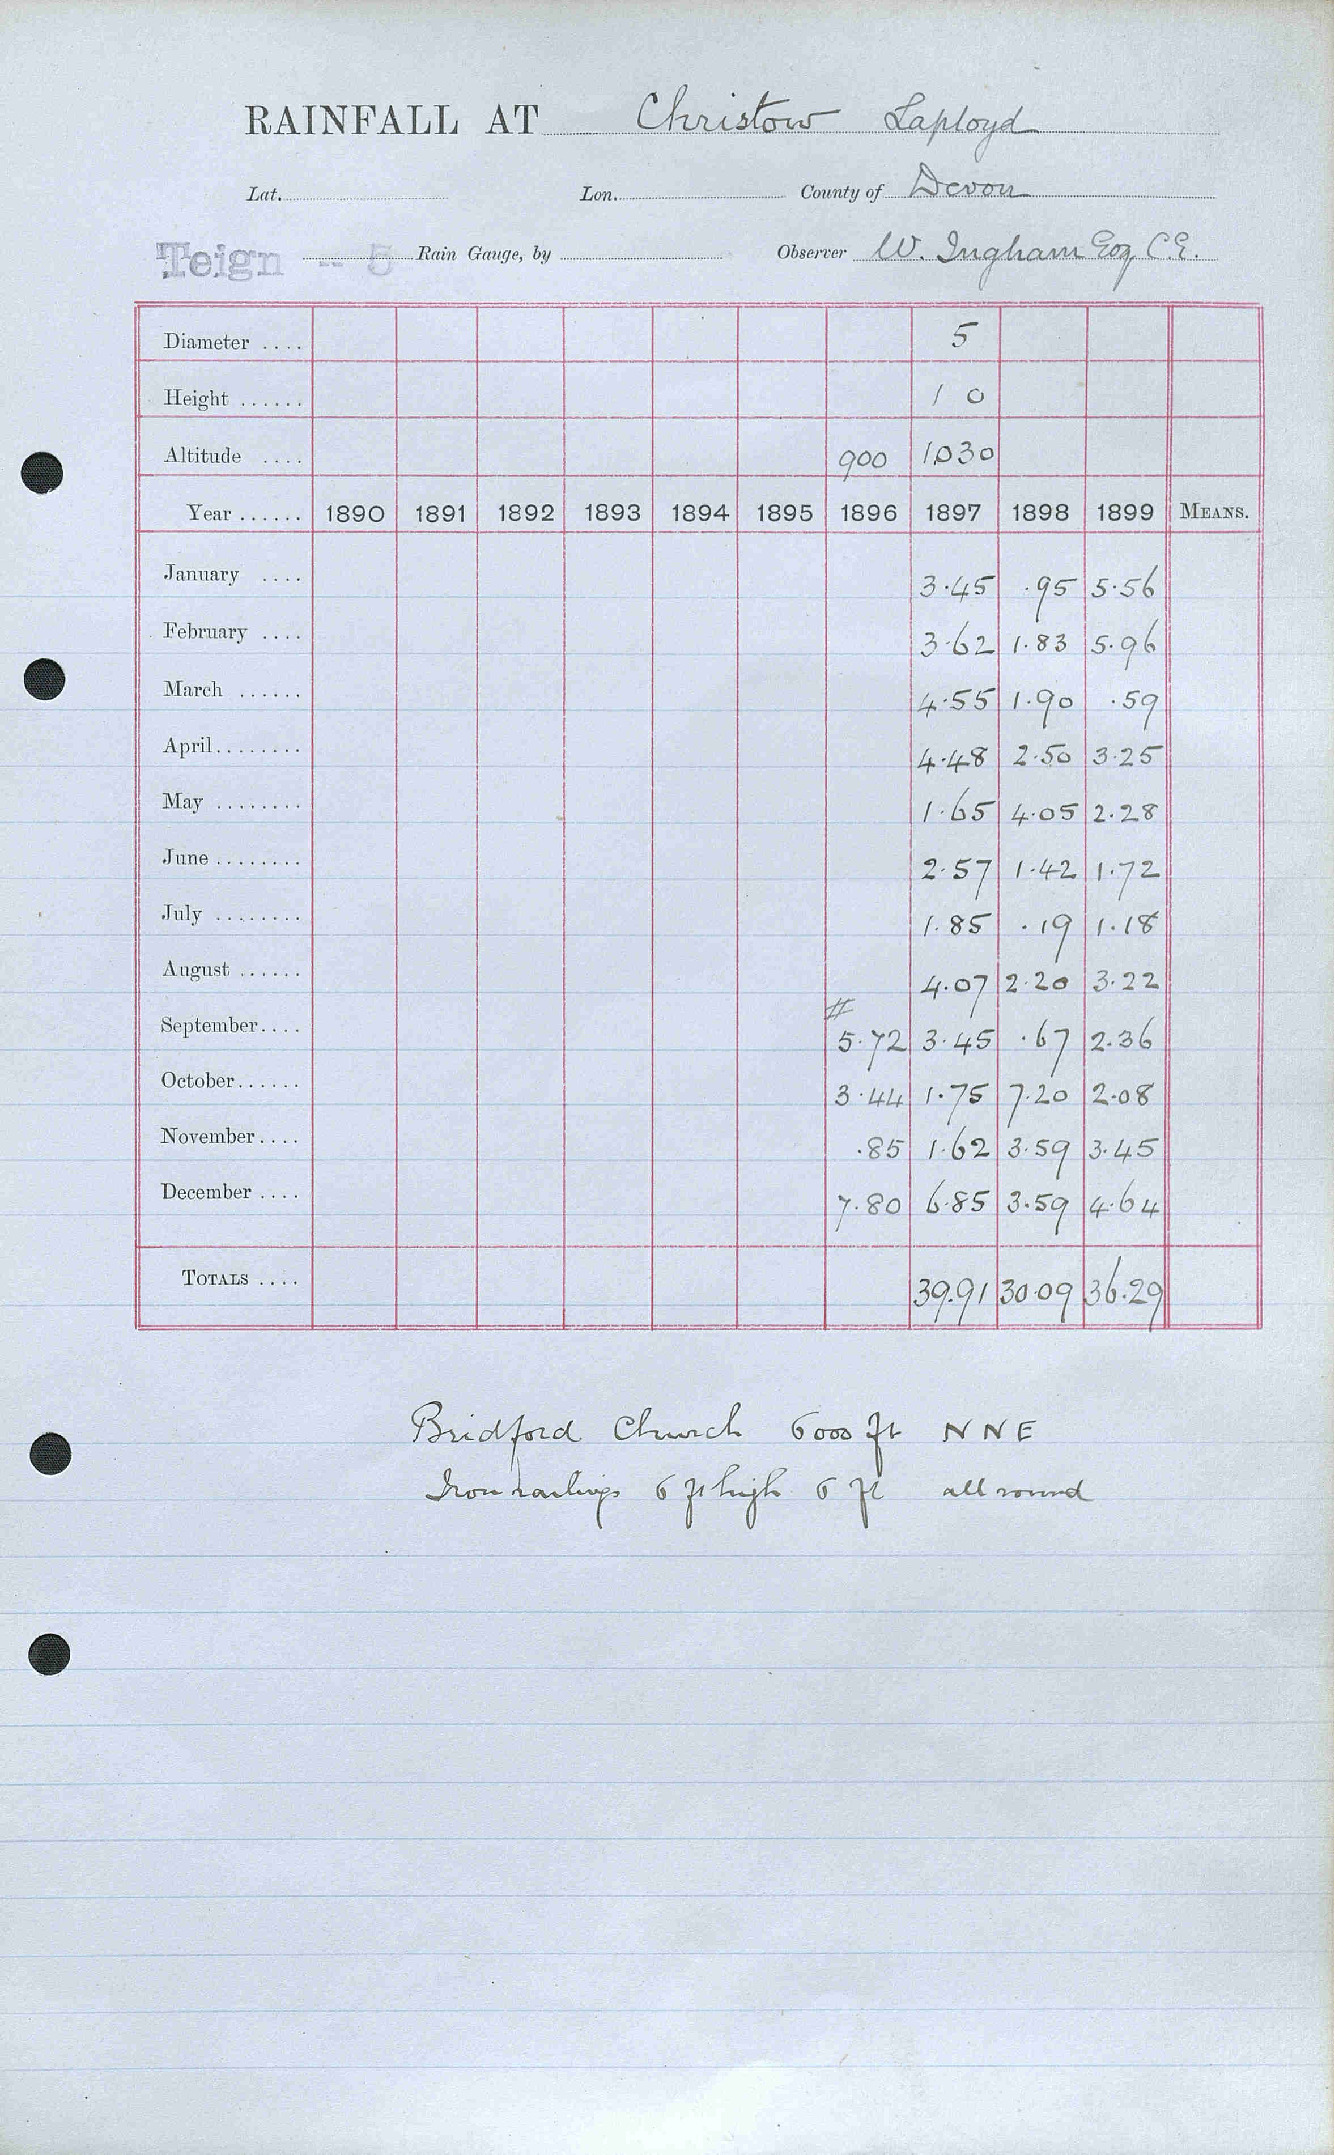 RAINFALL AT Christow Laployd
Lat. Lon. County of Devon
Teign -- 5 Rain Gauge, by Observer W. Ingham Esq C.E.
Diameter .... 5
Height ...... 1 0
Altitude .... 900 1030
Year ...... 1890 1891 1892 1893 1894 1895 1896 1897 1898 1899 MEANS.
January .... 3.45 .95 5.56
February .... 3.62 1.83 5.96
March ...... 4.55 1.90 .59
April........ 4.48 2.50 3.25
May ........ 1.65 4.05 2.28
June ........ 2.57 1.42 1.72
July ........ 1.85 .19 1.18
August ...... 4.07 2.20 3.22
#
September.... 5.72 3.45 .67 2.36
October...... 3.44 1.75 7.20 2.08
November.... .85 1.62 3.59 3.45
December .... 7.80 6.85 3.59 4.64
TOTALS .... 39.91 30.09 36.29
Bridford Church 6000 ft NNE
Iron railings 6 ft high 6 ft all round